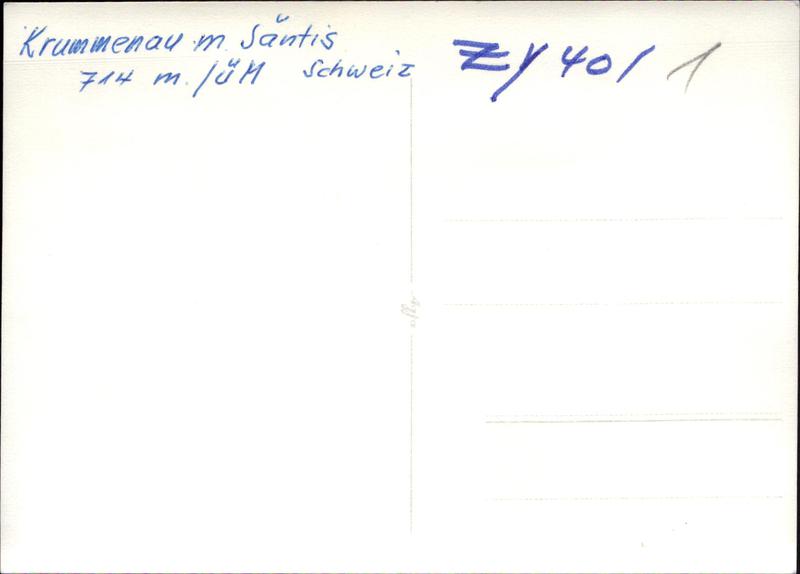 Krummenau m. Säntis
714 m./üM Schweiz
ZY 40/ 1